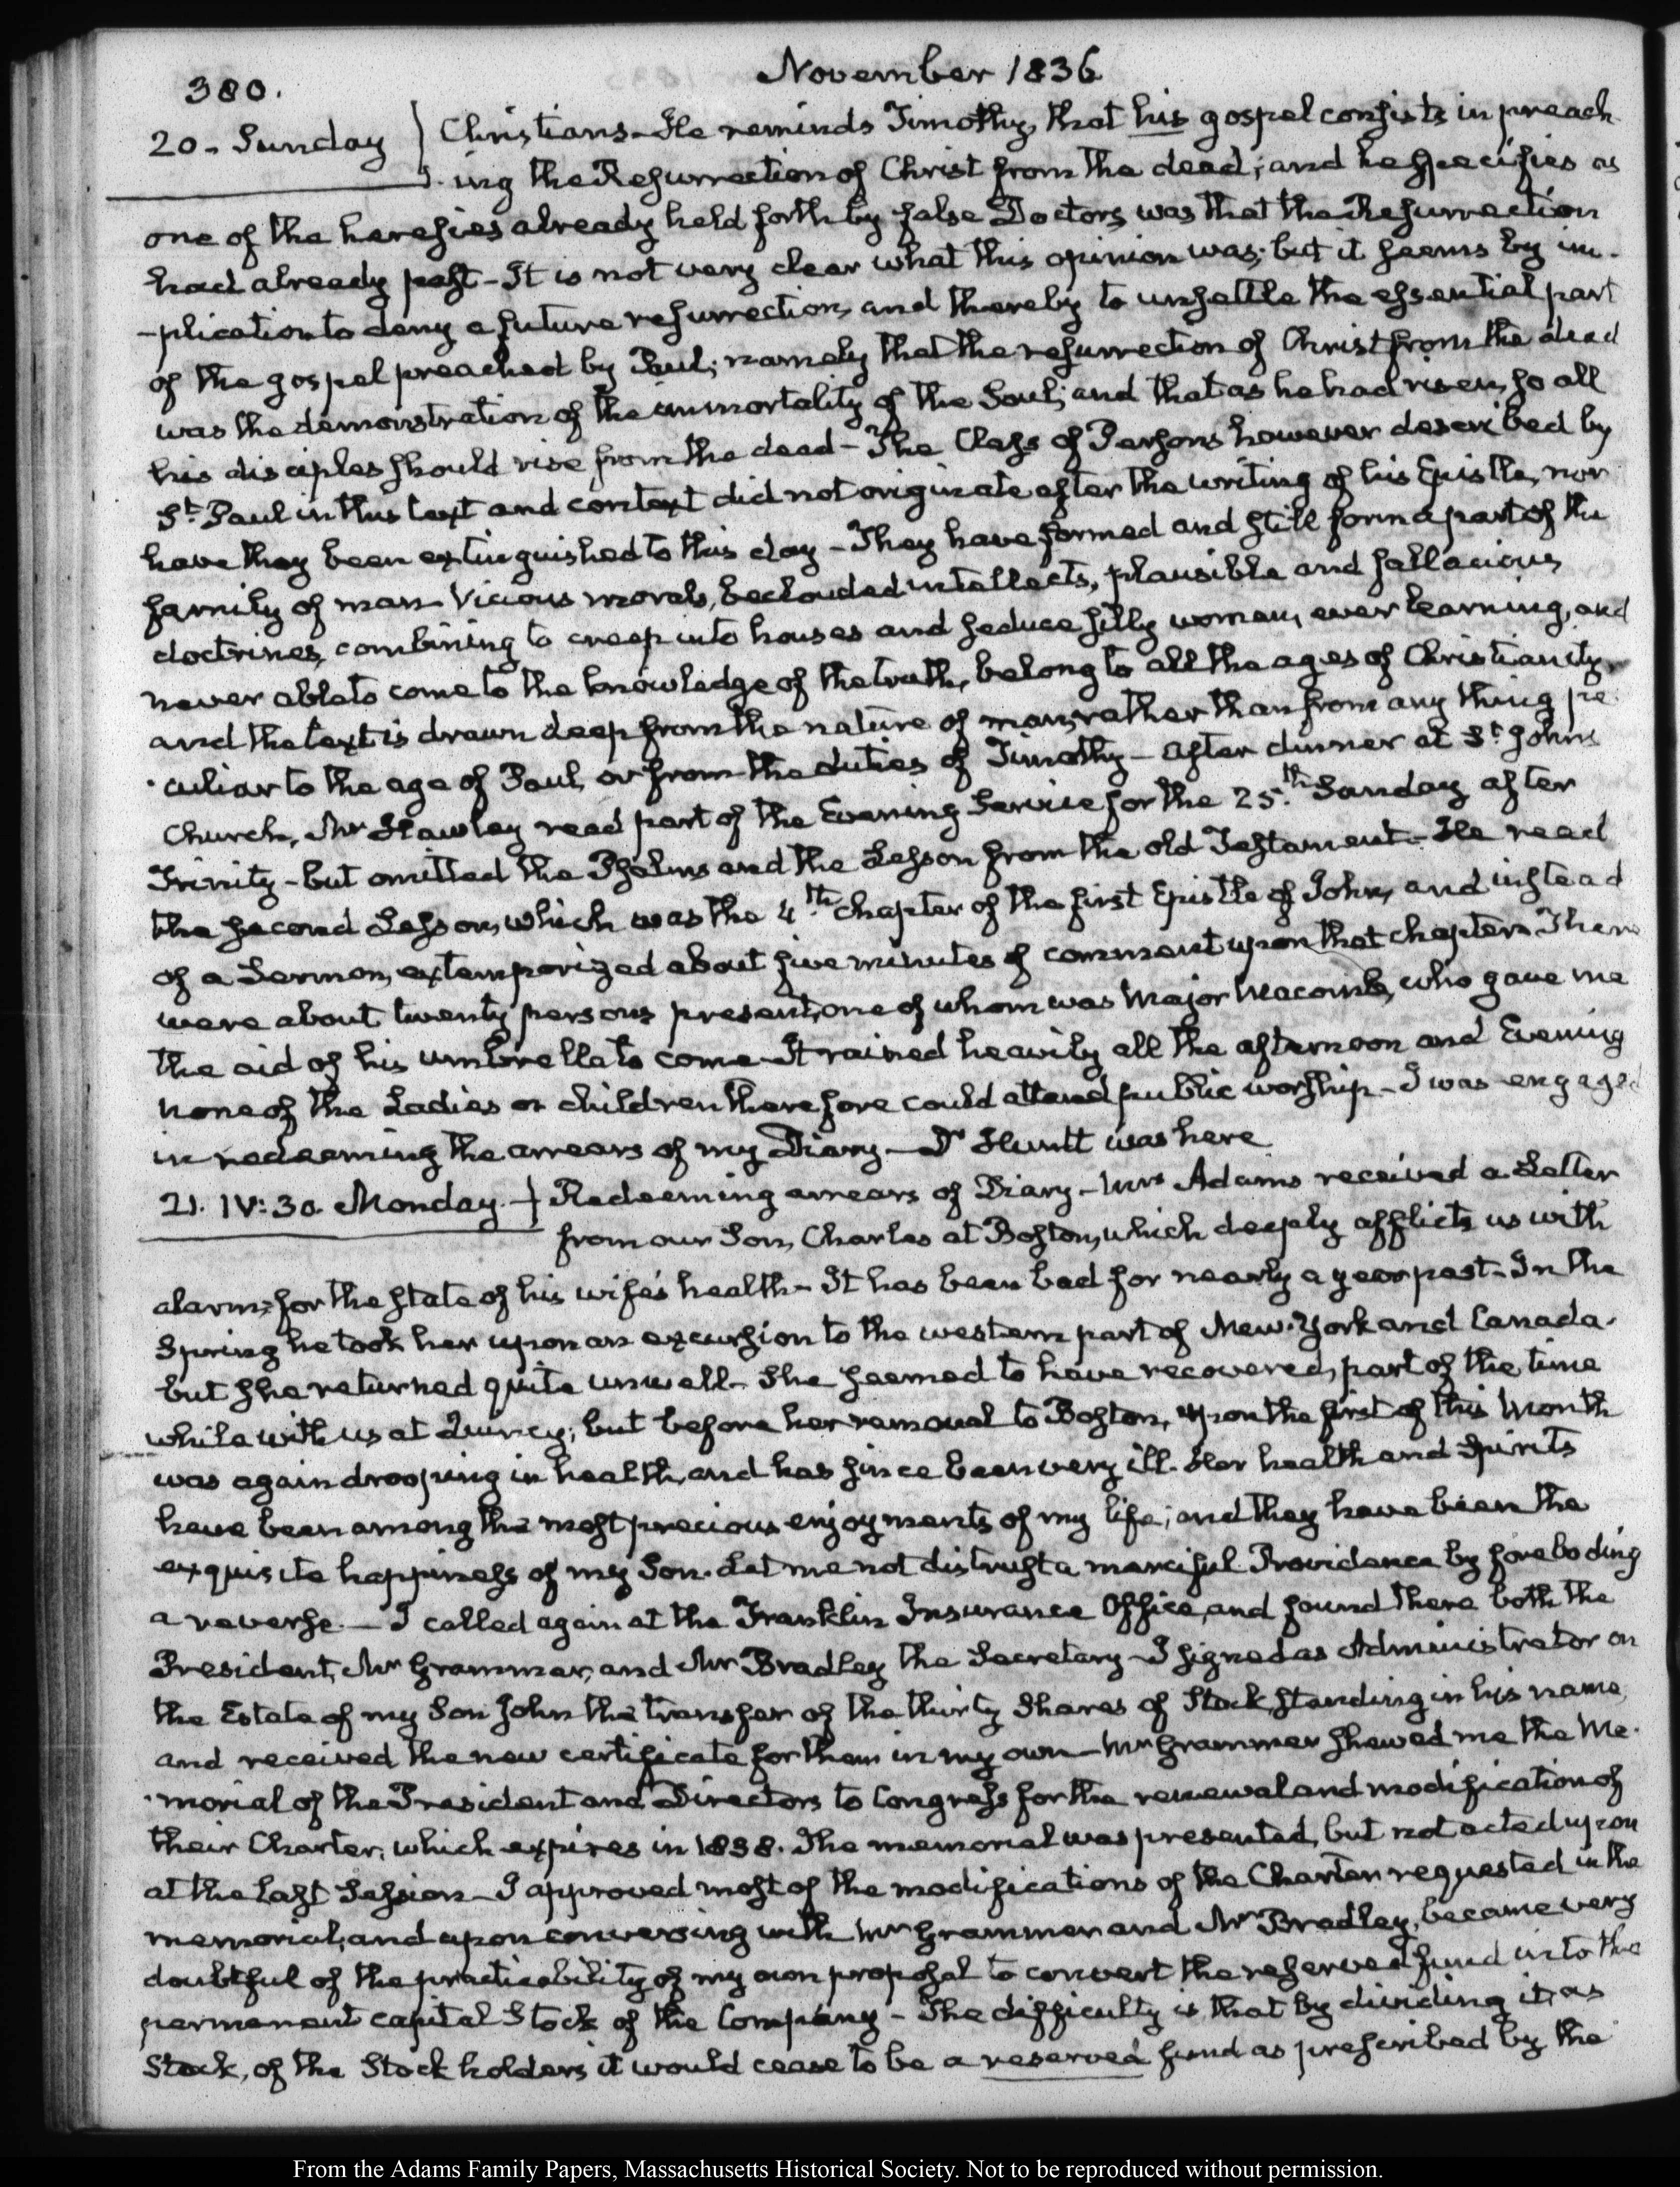 380.
November 1836
20. Sunday } Christians. He reminds Timothy, that his gospel consists in preach-
ing the Resurrection of Christ from the dead; and he specifies as
one of the heresies already held forth by false Doctors, was that the Resurrection
had already past - It is not very clear what this opinion was; but it seems by im-
-plication to deny a future resurrection, and thereby to unsettle the essential part
of the gospel preached by Paul; namely that the resurrection of Christ from the dead
was the demonstration of the immortality of the Soul; and that as he had risen, so all
his disciples should rise from the dead - The Class of Persons however described by
St. Paul in this text and context did not originate after the writing of his Epistle, nor
have they been extinguished to this day - They have formed and still form a part of the
family of man - Vicious morals, beclouded intellects, plausible and fallacious
doctrines, combining to creep into houses and seduce silly women, ever learning, and
never able to come to the knowledge of the truth, belong to all the ages of Christianity,
and the text is drawn deep from the nature of man, rather than from any thing pe-
-culiar to the age of Paul, or from the duties of Timothy - After dinner at St. John's
Church, Mr Hawley read part of the Evening Service for the 25.th Sunday after
Trinity - but omitted the Psalms and the Lesson from the old Testament - He read
the second Lesson, which was the 4.th chapter of the first Epistle of John, and instead
of a Sermon, extemporized about five minutes of comment upon that chapter. There
were about twenty persons present, one of whom was Major Macomb, who gave me
the aid of his umbrella to come - It rained heavily all the afternoon and Evening
none of the Ladies or children therefore could attend public worship - I was engaged
in redeeming the arrears of my Diary - Dr Huntt was here
21. IV:30. Monday. } Redeeming arrears of Diary - Mrs Adams received a Letter
from our Son, Charles at Boston, which deeply afflicts us with
alarm, for the state of his wife's health - It has been bad for nearly a year past - In the
Spring he took her upon an excursion to the western part of New-York and Canada.
but she returned quite unwell - She seemed to have recovered, part of the time
while with us at Quincy; but before her removal to Boston, upon the first of this Month
was again drooping in health, and has since been very ill. Her health and Spirits
have been among the most precious enjoyments of my life; and they have been the
exquisite happiness of my Son. Let me not distrust a merciful Providence by foreboding
a reverse. - I called again at the Franklin Insurance Office, and found there both the
President, Mr Grammer, and Mr Bradley the Secretary - I signed as Administrator on
the Estate of my Son John the transfer of the thirty Shares of Stock, standing in his name,
and received the new certificate for them in my own - Mr Grammer shewed me the Me-
-morial of the President and Directors to Congress for the renewal and modification of
their Charter, which expires in 1838. The memorial was presented, but not acted upon
at the last Session - I approved most of the modifications of the Charter requested in the
memorial, and upon conversing with Mr Grammer and Mr Bradley, became very
doubtful of the practicability of my own proposal to convert the reserved fund into the
permanent capital Stock of the Company - The difficulty is that by dividing it, as
Stock, of the Stockholders it would cease to be a reserved fund as prescribed by the
From the Adams Family Papers, Massachusetts Historical Society. Not to be reproduced without permission.